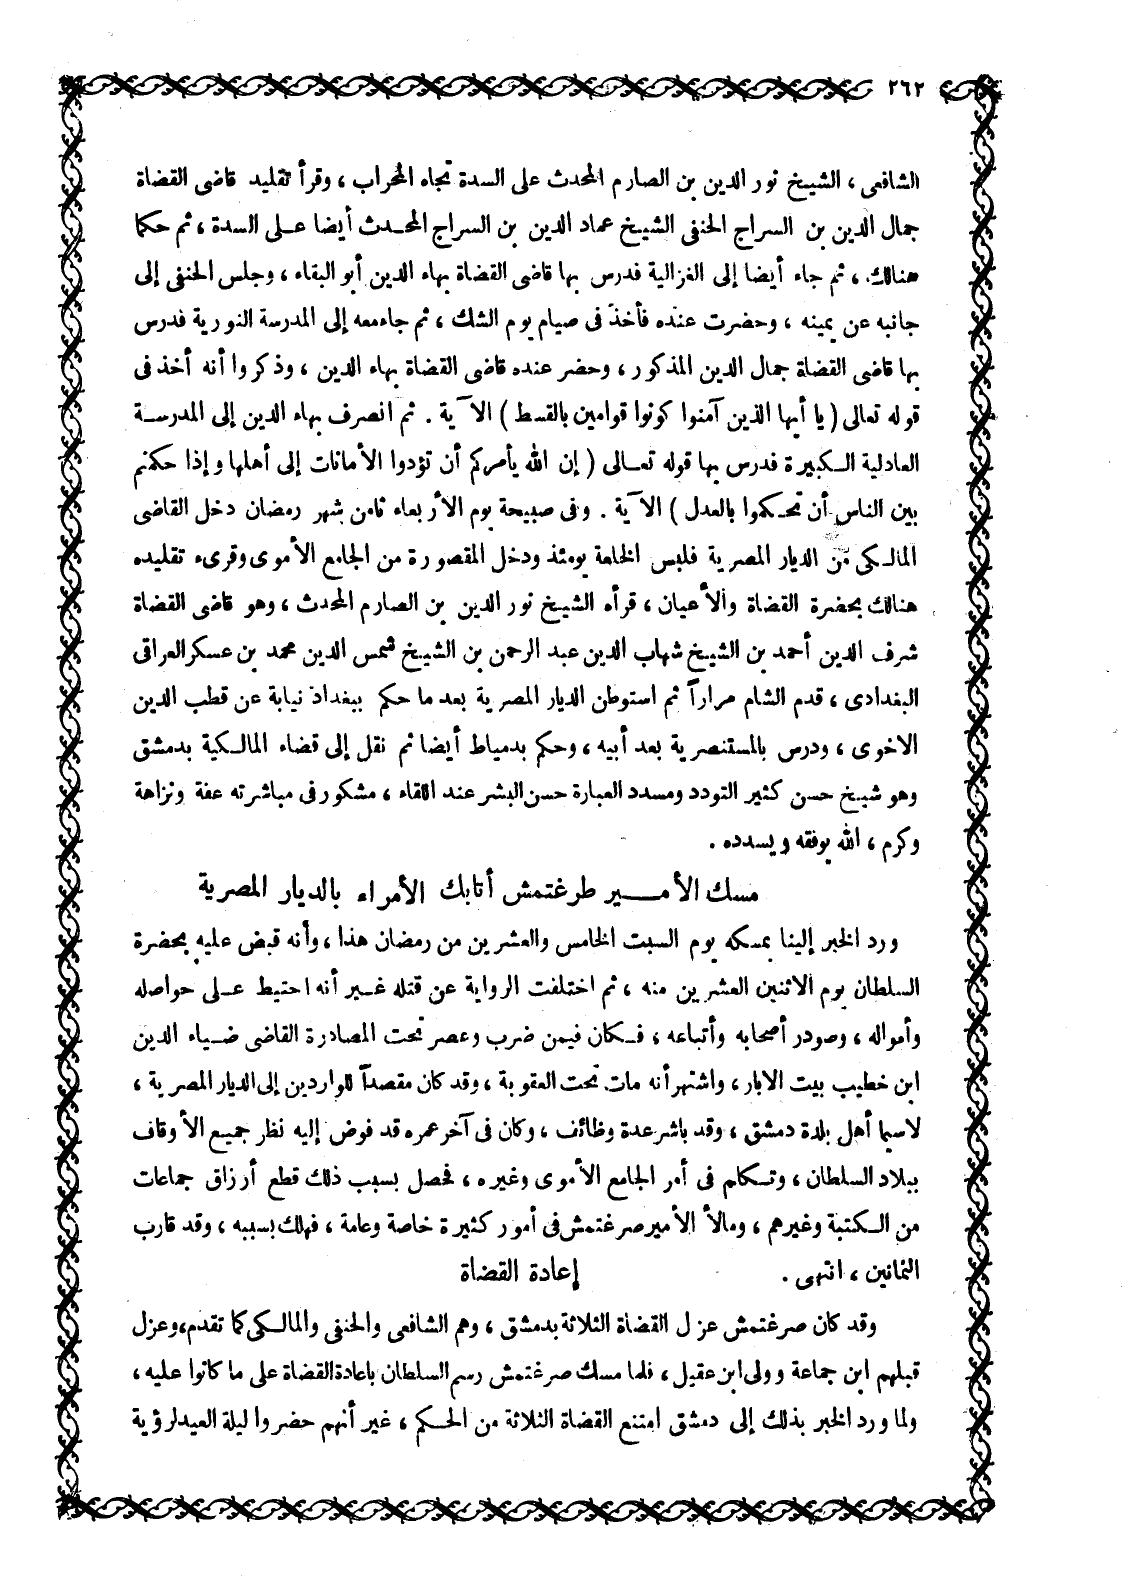 ٢٦٢
الشافعى ، الشيخ نور الدين بن الصارم المحدث على السدة تجاه المحراب ، وقرأ تقليد قاضى القضاة
جمال الدين بن السراج الحنفى الشيخ عماد الدين بن السراج المحدث أيضا على السدة ، ثم حكما
هنالك ، ثم جاء أيضا إلى الغزالية فدرس بها قاضى القضاة بهاء الدين أبو البقاء ، وجلس الحنفى إلى
جانبه عن يمينه ، وحضرت عنده فأخذ فى صيام يوم الشك ، ثم جاء معه إلى المدرسة النورية فدرس
بها قاضى القضاة جمال الدين المذكور ، وحضر عنده قاضى القضاة بهاء الدين ، وذكروا أنه أخذ فى
قوله تعالى ( يا أيها الذين آمنوا كونوا قوامين بالقسط ) الآية . ثم انصرف بهاء الدين إلى المدرسة
العادلية الكبيرة فدرس بها قوله تعالى ( إن الله يأمركم أن تؤدوا الأمانات إلى أهلها وإذا حكمتم
بين الناس أن تحكموا بالعدل ) الآية . وفى صبيحة يوم الأربعاء ثامن شهر رمضان دخل القاضى
المالكى من الديار المصرية فلبس الخلعة يومئذ ودخل المقصورة من الجامع الأموى وقرىء تقليده
هنالك بحضرة القضاة والأعيان ، قرأه الشيخ نور الدين بن الصارم المحدث ، وهو قاضى القضاة
شرف الدين أحمد بن الشيخ شهاب الدين عبد الرحمن بن الشيخ شمس الدين محمد بن عسكر العراقى
البغدادى ، قدم الشام مراراً ثم استوطن الديار المصرية بعد ما حكم ببغداد نيابة عن قطب الدين
الاخوى ، ودرس بالمستنصرية بعد أبيه ، وحكم بدمياط أيضا ثم نقل إلى قضاء المالكية بدمشق
وهو شيخ حسن كثير التودد ومسدد العبارة حسن البشر عند اللقاء ، مشكور فى مباشرته عفة ونزاهة
وكرم ، الله يوفقه ويسدده .
مسك الأمير طرغتمش أتابك الأمراء بالديار المصرية
ورد الخبر إلينا بمسكه يوم السبت الخامس والعشرين من رمضان هذا ، وأنه قبض عليه بحضرة
السلطان يوم الاثنين العشرين منه ، ثم اختلفت الرواية عن قتله غير أنه احتيط على حواصله
وأمواله ، وصودر أصحابه وأتباعه ، فكان فيمن ضرب وعصر تحت المصادرة القاضى ضياء الدين
ابن خطيب بيت الابار ، واشتهر أنه مات تحت العقوبة ، وقد كان مقصداً للواردين إلى الديار المصرية ،
لاسيما أهل بلدة دمشق ، وقد باشر عدة وظائف ، وكان فى آخر عمره قد فوض إليه نظر جميع الأوقاف
ببلاد السلطان ، وتكلم فى أمر الجامع الأموى وغيره ، فحصل بسبب ذلك قطع أرزاق جماعات
من الكتبة وغيرهم ، ومالأ الأمير صرغتمش فى أمور كثيرة خاصة وعامة ، فهلك بسببه ، وقد قارب
الثمانين ، انتهى . إعادة القضاة
وقد كان صرغتمش عزل القضاة الثلاثة بدمشق ، وهم الشافعى والحنفى والمالكى كما تقدم ، وعزل
قبلهم ابن جماعة وولى ابن عقيل ، فلما مسك صرغتمش رسم السلطان باعادة القضاة على ما كانوا عليه ،
ولما ورد الخبر بذلك إلى دمشق امتنع القضاة الثلاثة من الحكم ، غير أنهم حضروا ليلة العيد لرؤية